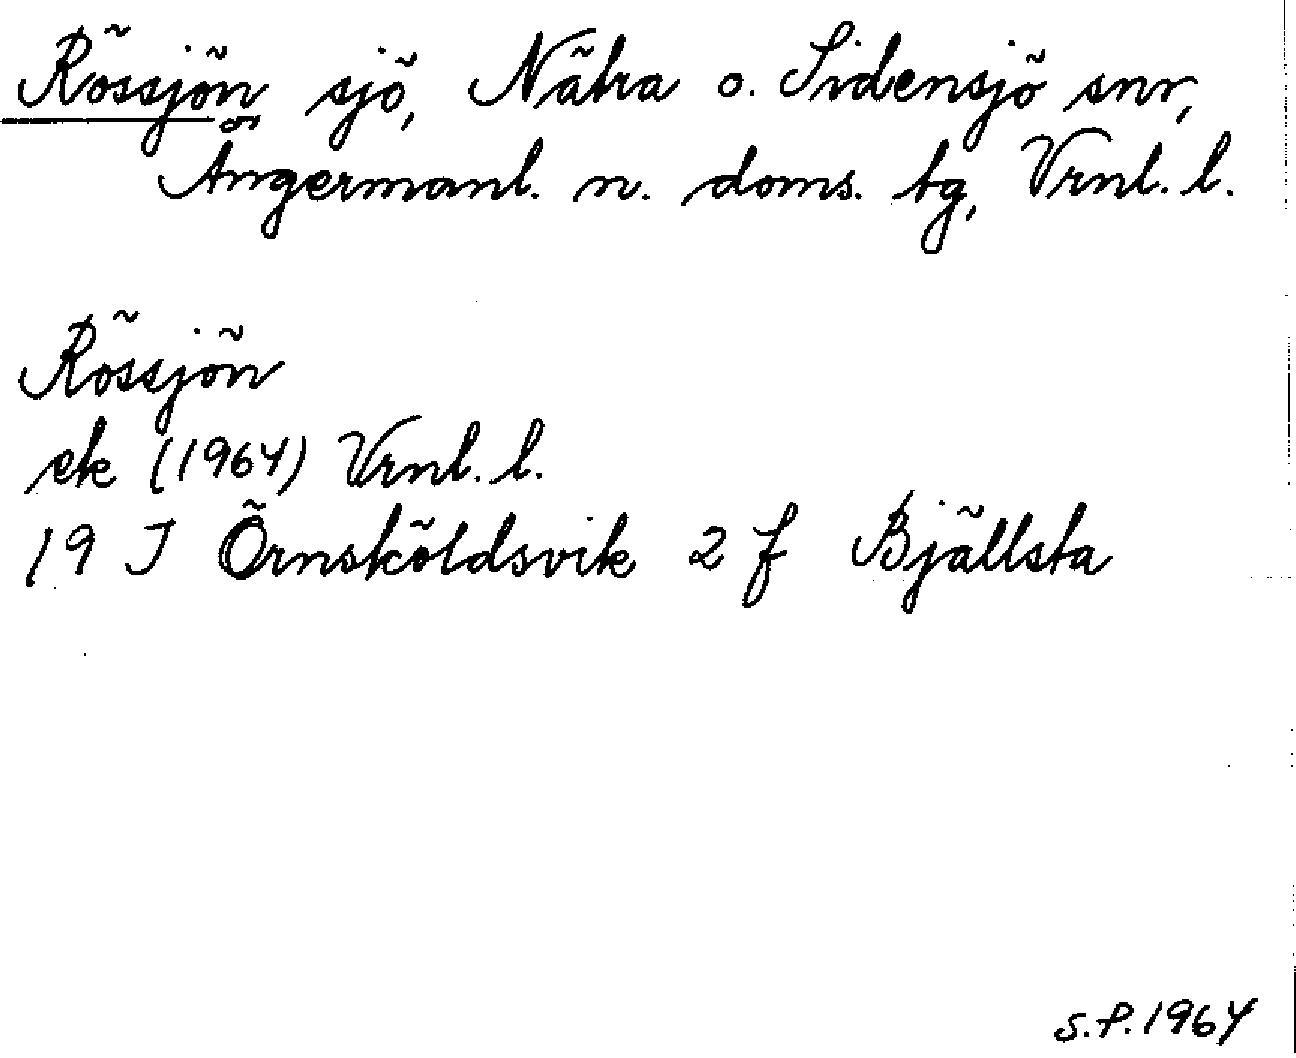 Rössjön sjö, Nätra o. Sidensjö snr,
Ångermanl. n. doms. tg, Vrnl. l.
Rössjön
ek (1964) Vrnl. l.
19 J Örnsköldsvik 2 f Bjällsta
S.P. 1964